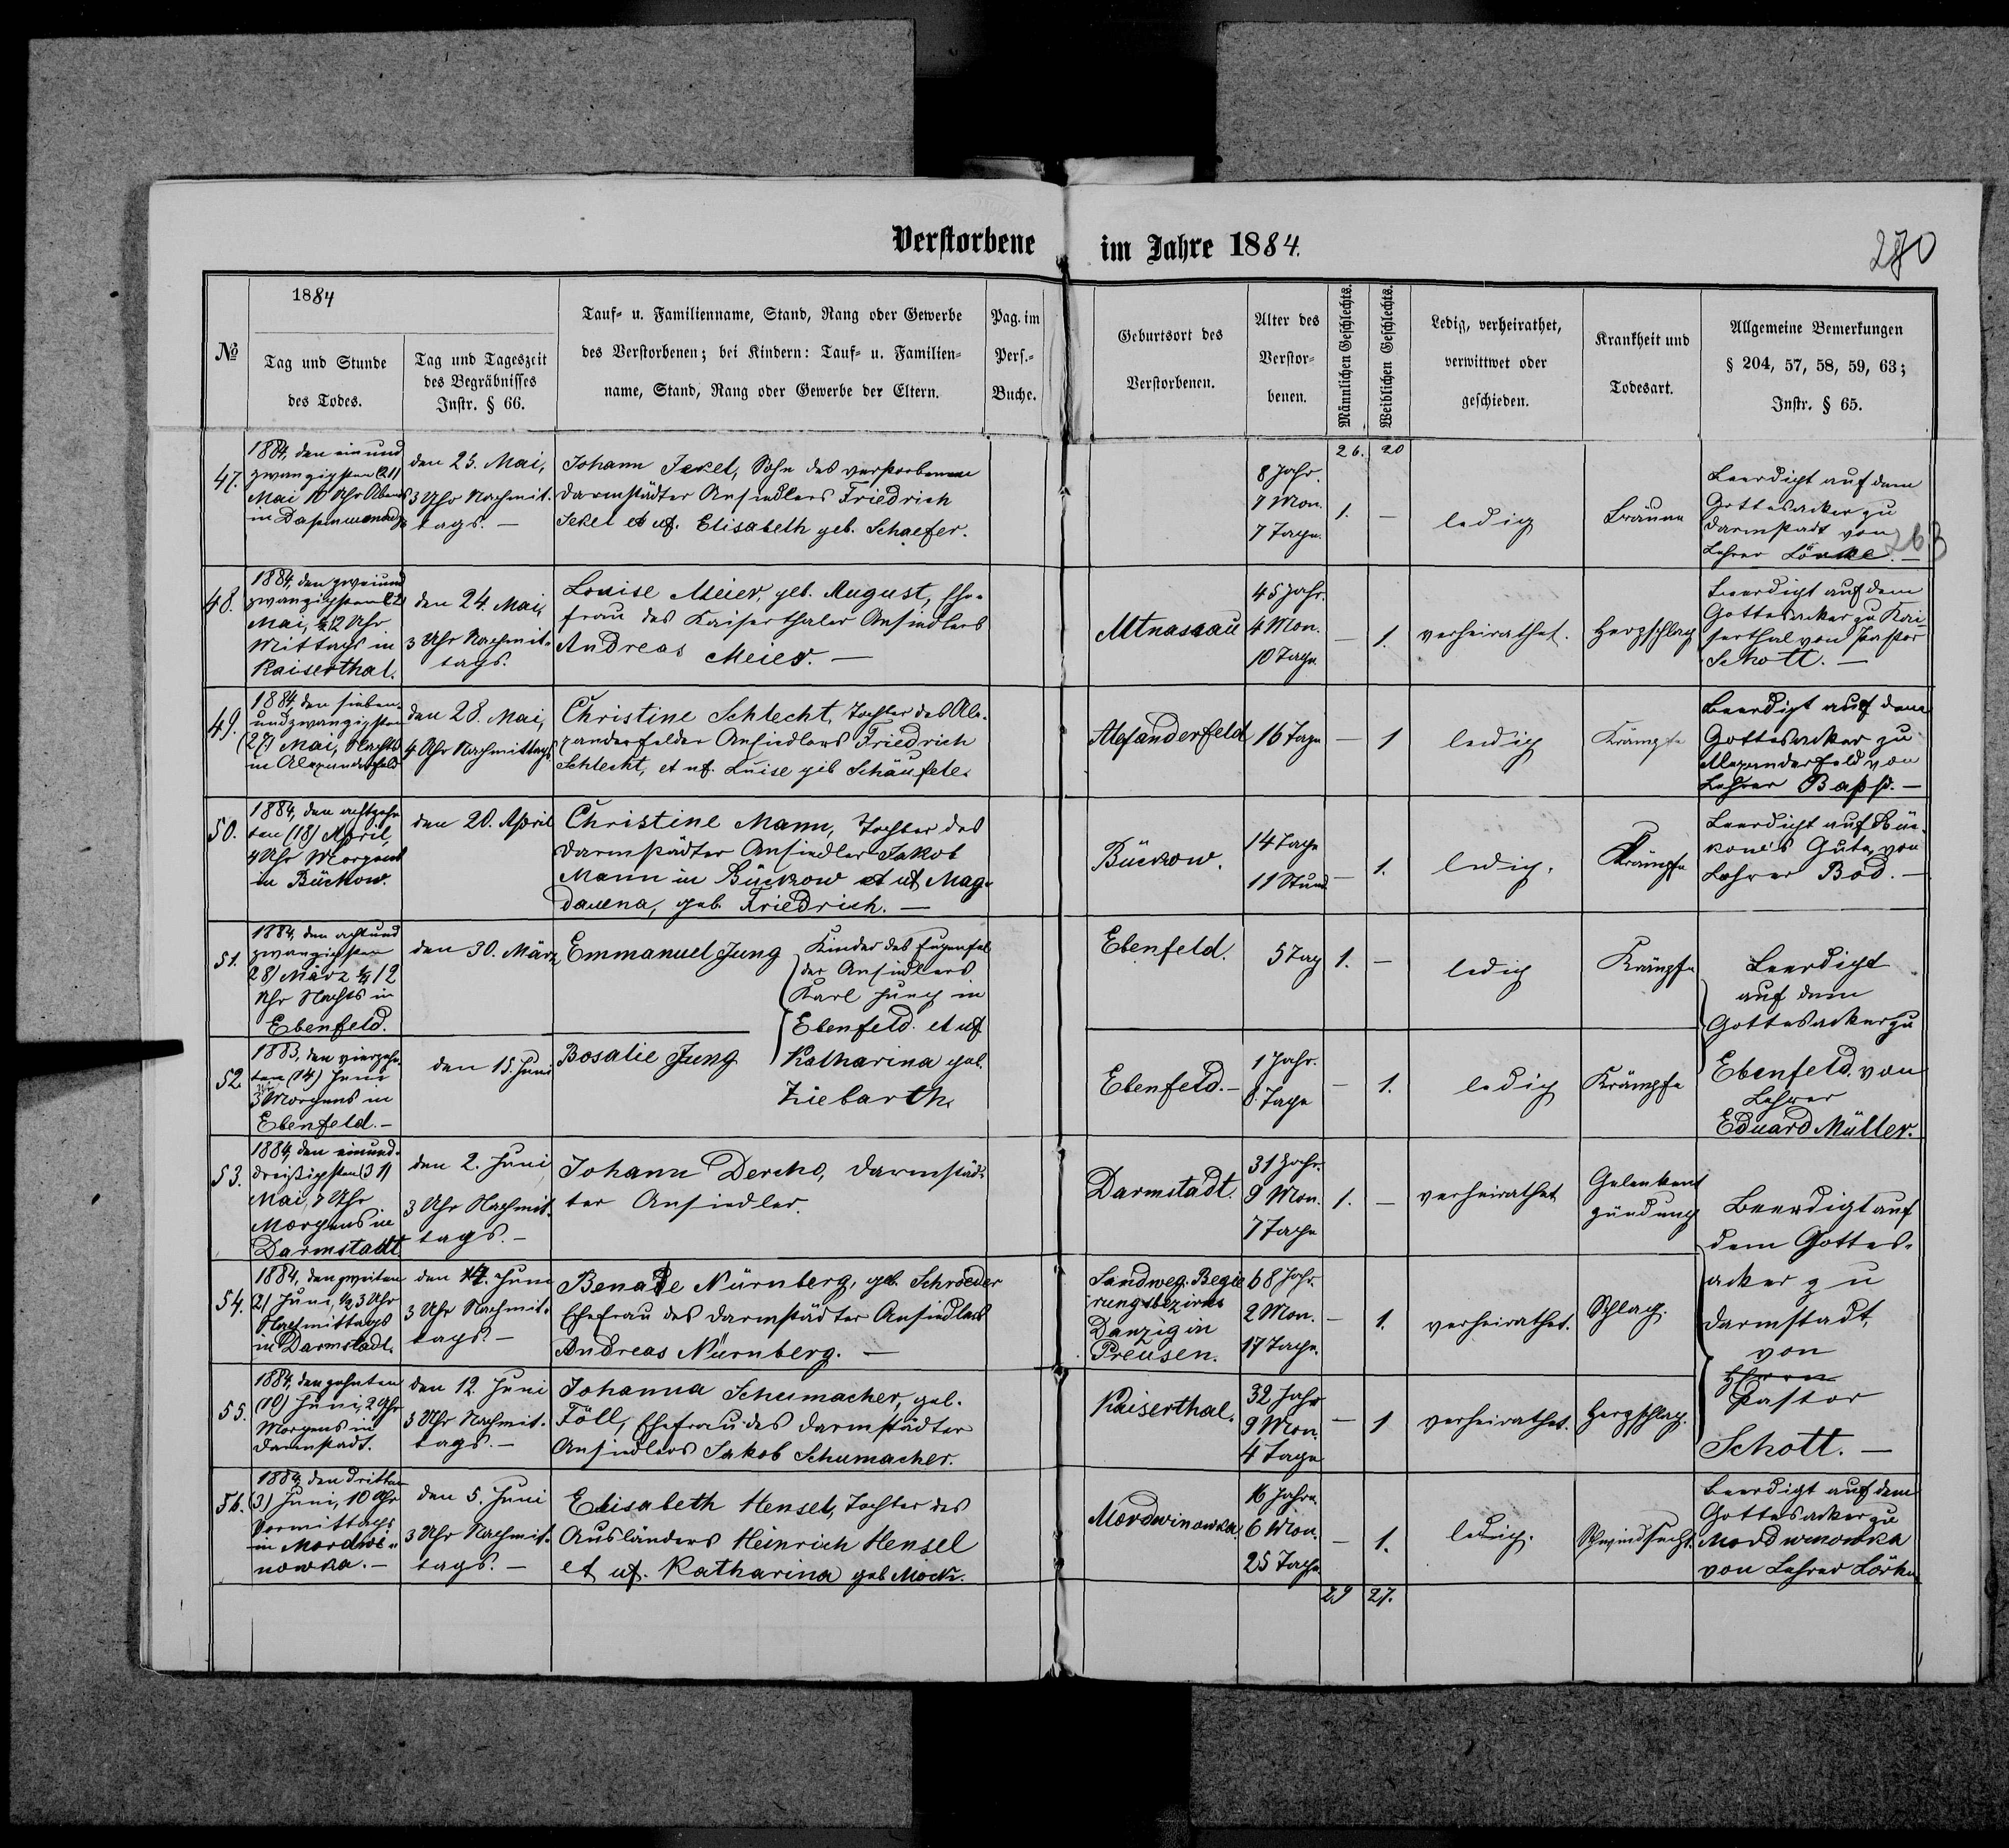 Verstorbene im Jahre 1884.
280
1884
№
Tag und Stunde
des Todes.
Tag und Tageszeit
des Begräbnisses
Instr. § 66.
Tauf- u. Familienname, Stand, Rang oder Gewerbe
des Verstorbenen; bei Kindern: Tauf- u. Familien-
name, Stand, Rang oder Gewerbe der Eltern.
Pag. im
Pers.-
Buche.
Geburtsort des
Verstorbenen.
Alter des
Verstor-
benen.
Männlichen Geschlechts.
Weiblichen Geschlechts.
Ledig, verheirathet,
verwittwet oder
geschieden.
Krankheit und
Todesart.
Allgemeine Bemerkungen
§ 204, 57, 58, 59, 63;
Instr. § 65.
26. 20
47.
1884, den einund
zwanzigsten (21)
Mai 10 Uhr Abends
in
den 23. Mai,
3 Uhr Nachmit-
tags. —
Johann Jekel, Sohn des verstorbenen
Darmstädter Ansiedlers Friedrich
Jekel et ux. Elisabeth geb. Schaefer.
8 Jahr.
7 Mon.
7 Tage.
1.
—
ledig
Bräune
Beerdigt auf dem
Gottesacker zu
Darmstadt von
Lehrer Lönke. —
263
48.
1884, den zweiund
zwanzigsten (22)
Mai, ½ 12 Uhr
Mittags in
Kaiserthal.
den 24. Mai,
3 Uhr Nachmit-
tags.
Louise Meier, geb. August, Ehe-
frau des Kaiserthaler Ansiedlers
Andreas Meier. —
Altnassau
45 Jahr.
4 Mon.
10 Tage
—
1.
verheirathet.
Herzschlag
Beerdigt auf dem
Gottesacker zu Kai-
serthal von Pastor
Schott. —
49.
1884, den sieben-
undzwanzigsten
(27) Mai, Nachts
in Alexanderfeld
den 28. Mai,
4 Uhr Nachmittags
Christine Schlecht, Tochter des Ale-
xanderfelder Ansiedlers Friedrich
Schlecht, et ux. Luise geb Schäufele.
Alexanderfeld
16 Tage
—
1
ledig
Krämpfe
Beerdigt auf dem
Gottesacker zu
Alexanderfeld von
Lehrer Bapp. —
50.
1884, den achtzehn-
ten (18) April,
4 Uhr Morgens
in Bückow.
den 20. April
Christine Mann, Tochter des
Darmstädter Ansiedler Jakob
Mann in Bückow et ux Mag-
dalena, geb. Friedrich. —
Bückow.
14 Tage
11 Stund
—
1.
ledig.
Krämpfe
Beerdigt auf Büc-
kow's Gute, von
Lehrer Bod. —
51.
1884, den achtund
zwanzigsten
28) März ½ 12
Uhr Nachts in
Ebenfeld.
den 30. März
Emmanuel Jung
Kinder des Eugenfel-
der Ansiedlers
Karl Jung in
Ebenfeld. et ux
Katharina geb.
Ziebarth.
Ebenfeld.
5 Tag
1.
—
ledig
Krämpfe
Beerdigt
auf dem
Gottesacker zu
Ebenfeld. von
Lehrer
Eduard Müller.
52
1883, den vierzehn-
ten (14) Juni
3 Uhr Morgens in
Ebenfeld. —
den 15. Juni
Rosalie Jung
Ebenfeld. —
1 Jahr.
8 Tage
—
1.
ledig
Krämpfe
53.
1884, den einund-
dreißigsten (31)
Mai, 7 Uhr
Morgens in
Darmstadt
den 2. Juni
3 Uhr Nachmit-
tags. —
Johann Dercho, Darmstäd-
ter Ansiedler.
Darmstadt.
31 Jahr.
9 Mon.
7 Tage
1.
—
verheirathet
Gelenkent
zündung
Beerdigt auf
dem Gottes-
acker zu
Darmstadt,
von
Herrn
Pastor
Schott. —
54.
1884, den zweiten
2) Juni, ½ 3 Uhr
Nachmittags
in Darmstadt.
den 4. Juni
3 Uhr Nachmit-
tags. —
Benate Nürnberg, geb. Schroeder
Ehefrau des Darmstädter Ansiedlers
Andreas Nürnberg. —
Sandweg. Regie
rungsbezirks
Danzig in
Preusen.
68 Jahr.
2 Mon.
17 Tage
—
1.
verheirathet.
Schlag.
55.
1884, den zehnten
(10) Juni, 2 Uhr
Morgens in
Darmstadt.
den 12. Juni
3 Uhr Nachmit-
tags. —
Johanna Schumacher, geb.
Föll, Ehefrau des Darmstädter
Ansiedlers Jakob Schumacher.
Kaiserthal.
32 Jahr
9 Mon.
4 Tage
—
1
verheirathet.
Herzschlag.
56.
1884, den dritten
(3) Juni, 10 Uhr
Vormittags
in Mordwi-
nowka. —
den 5. Juni
3 Uhr Nachmit-
tags. —
Elisabeth Hensel, Tochter des
Ausländers Heinrich Hensel
et ux. Katharina geb Mock.
Mordwinowka
16 Jahr.
6 Mon.
25 Tage
—
1.
ledig.
Schwindsucht.
Beerdigt auf dem
Gottesacker zu
Mordwinowka
von Lehrer Lönke
29 27.